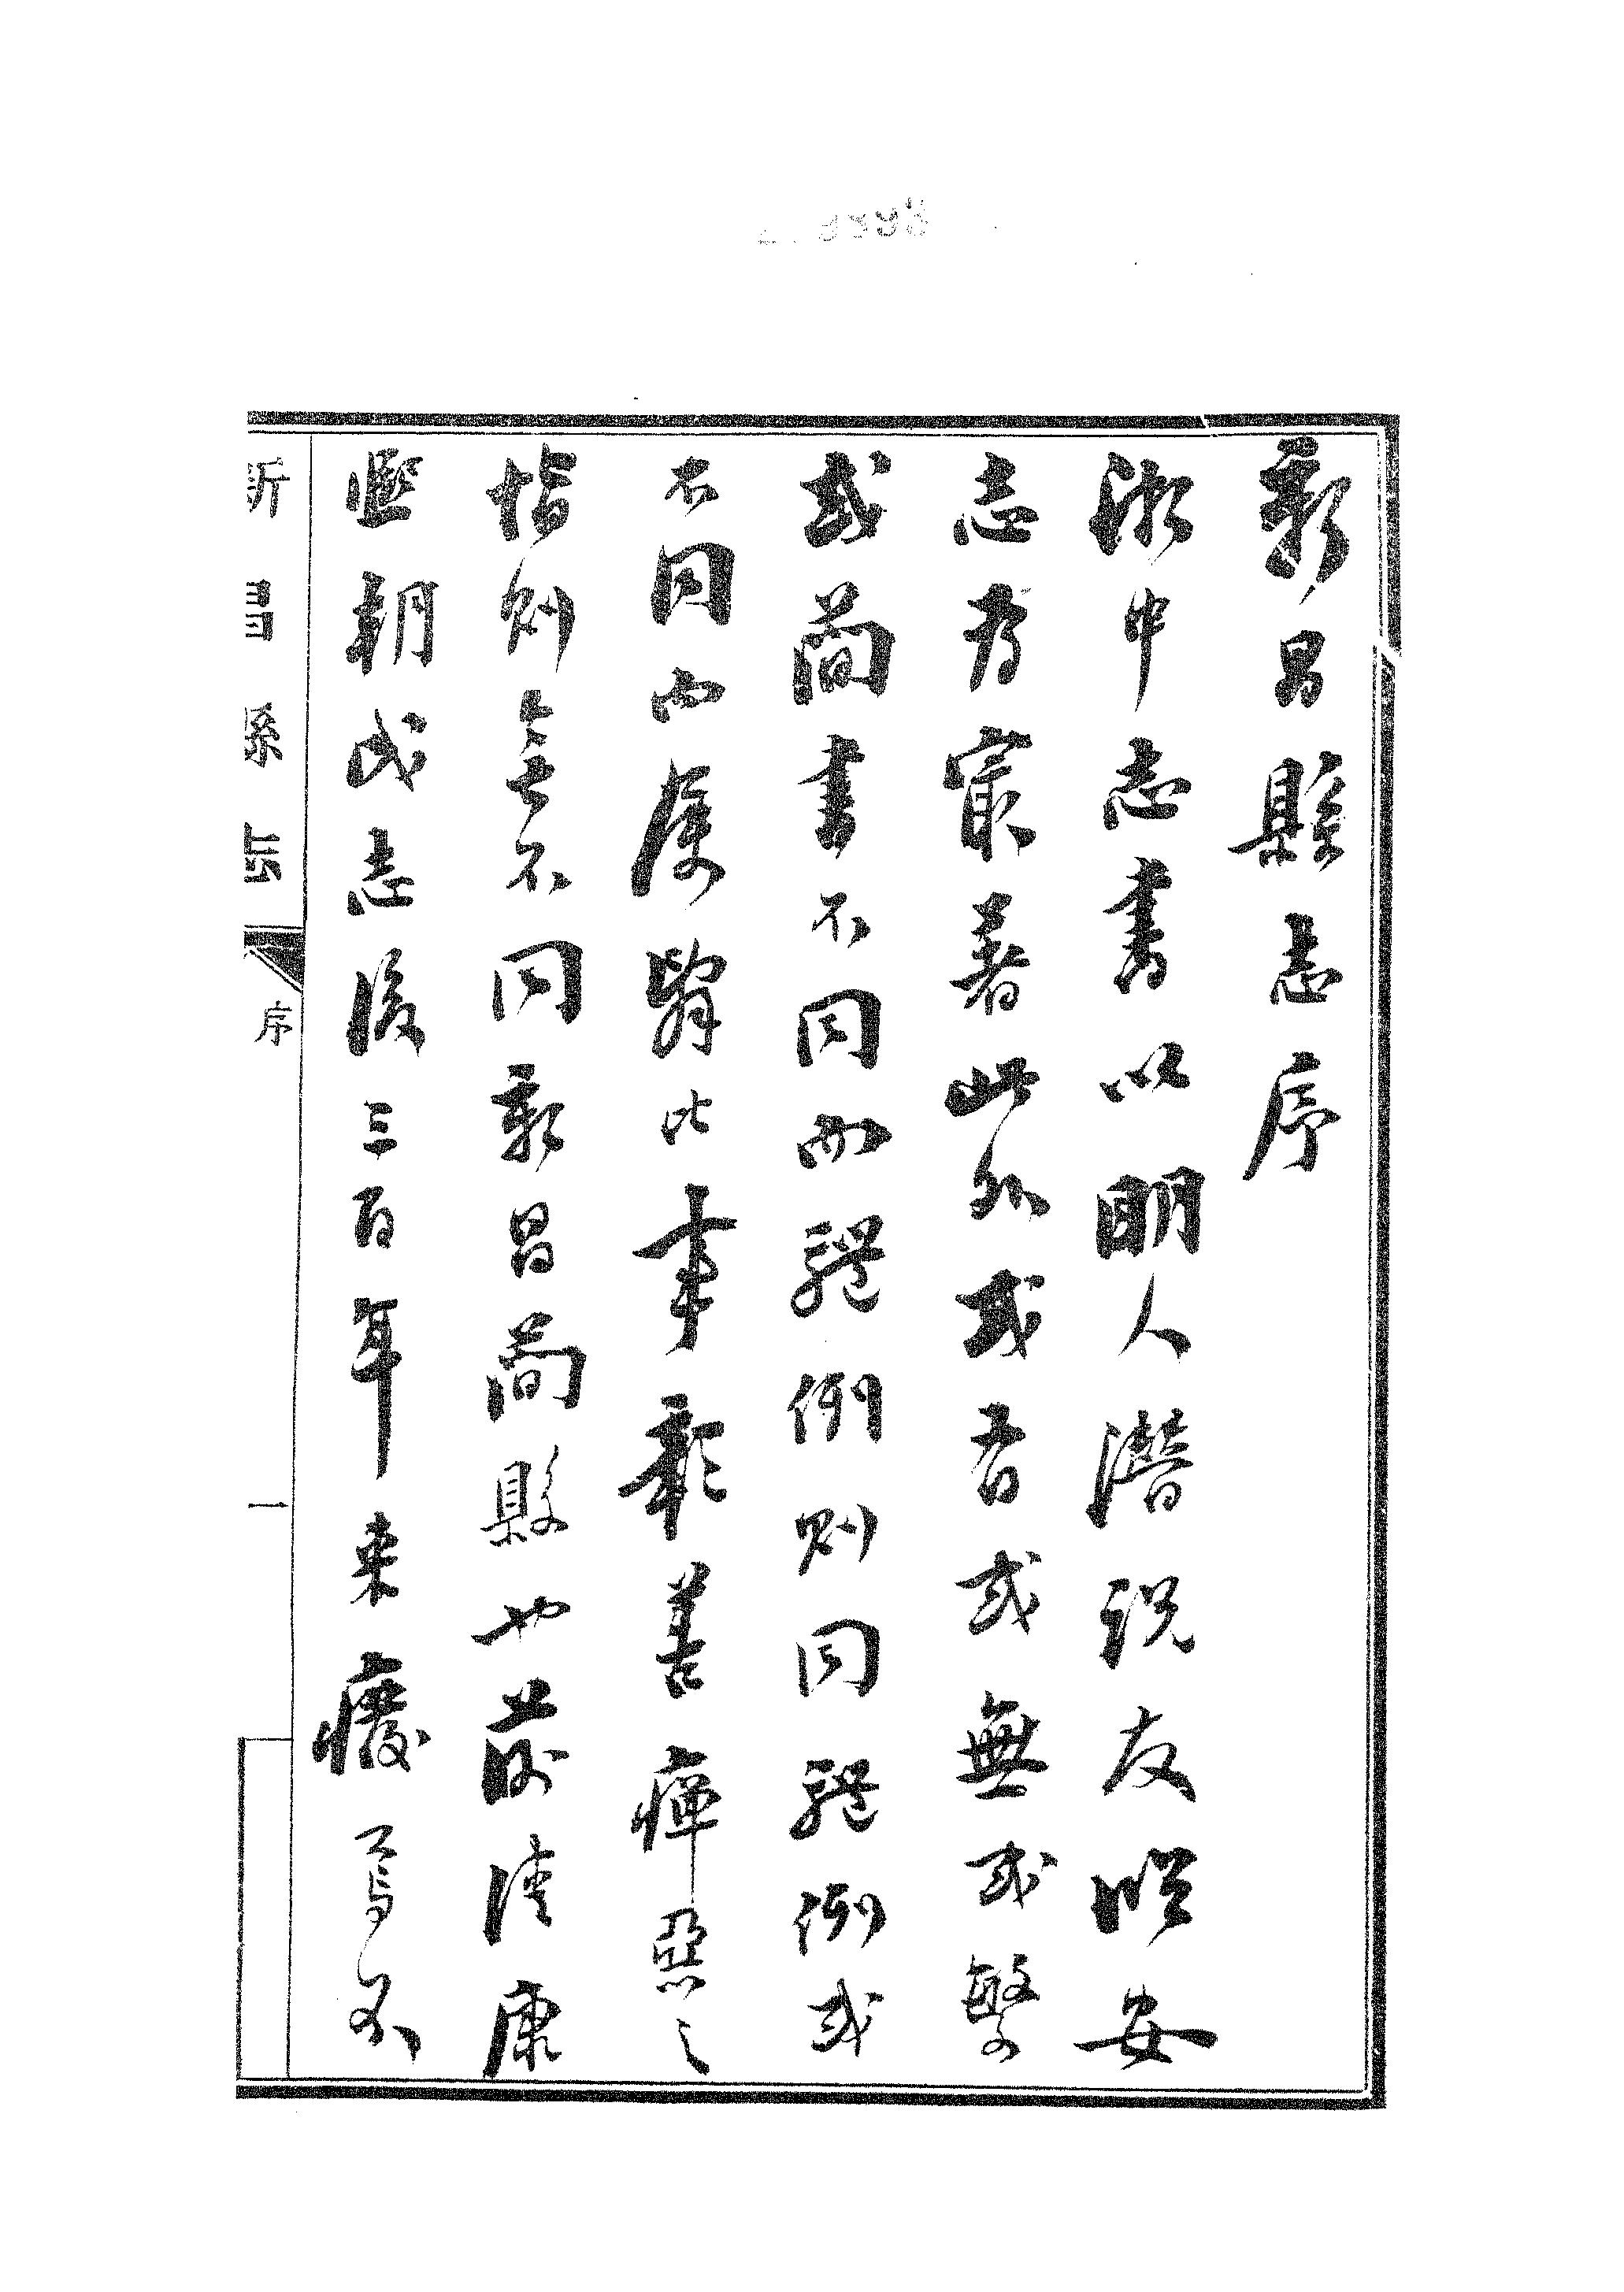 新昌縣志序
浙中志書以明人潛說友臨安
志為最著此外或有或無或繁
或簡書不同而體例則同體例或
不同而屬辭比事彰善癉惡之
恉則無不同新昌簡縣也前清康
熙朝成志後三百年來廢焉不
新昌縣志
序
一